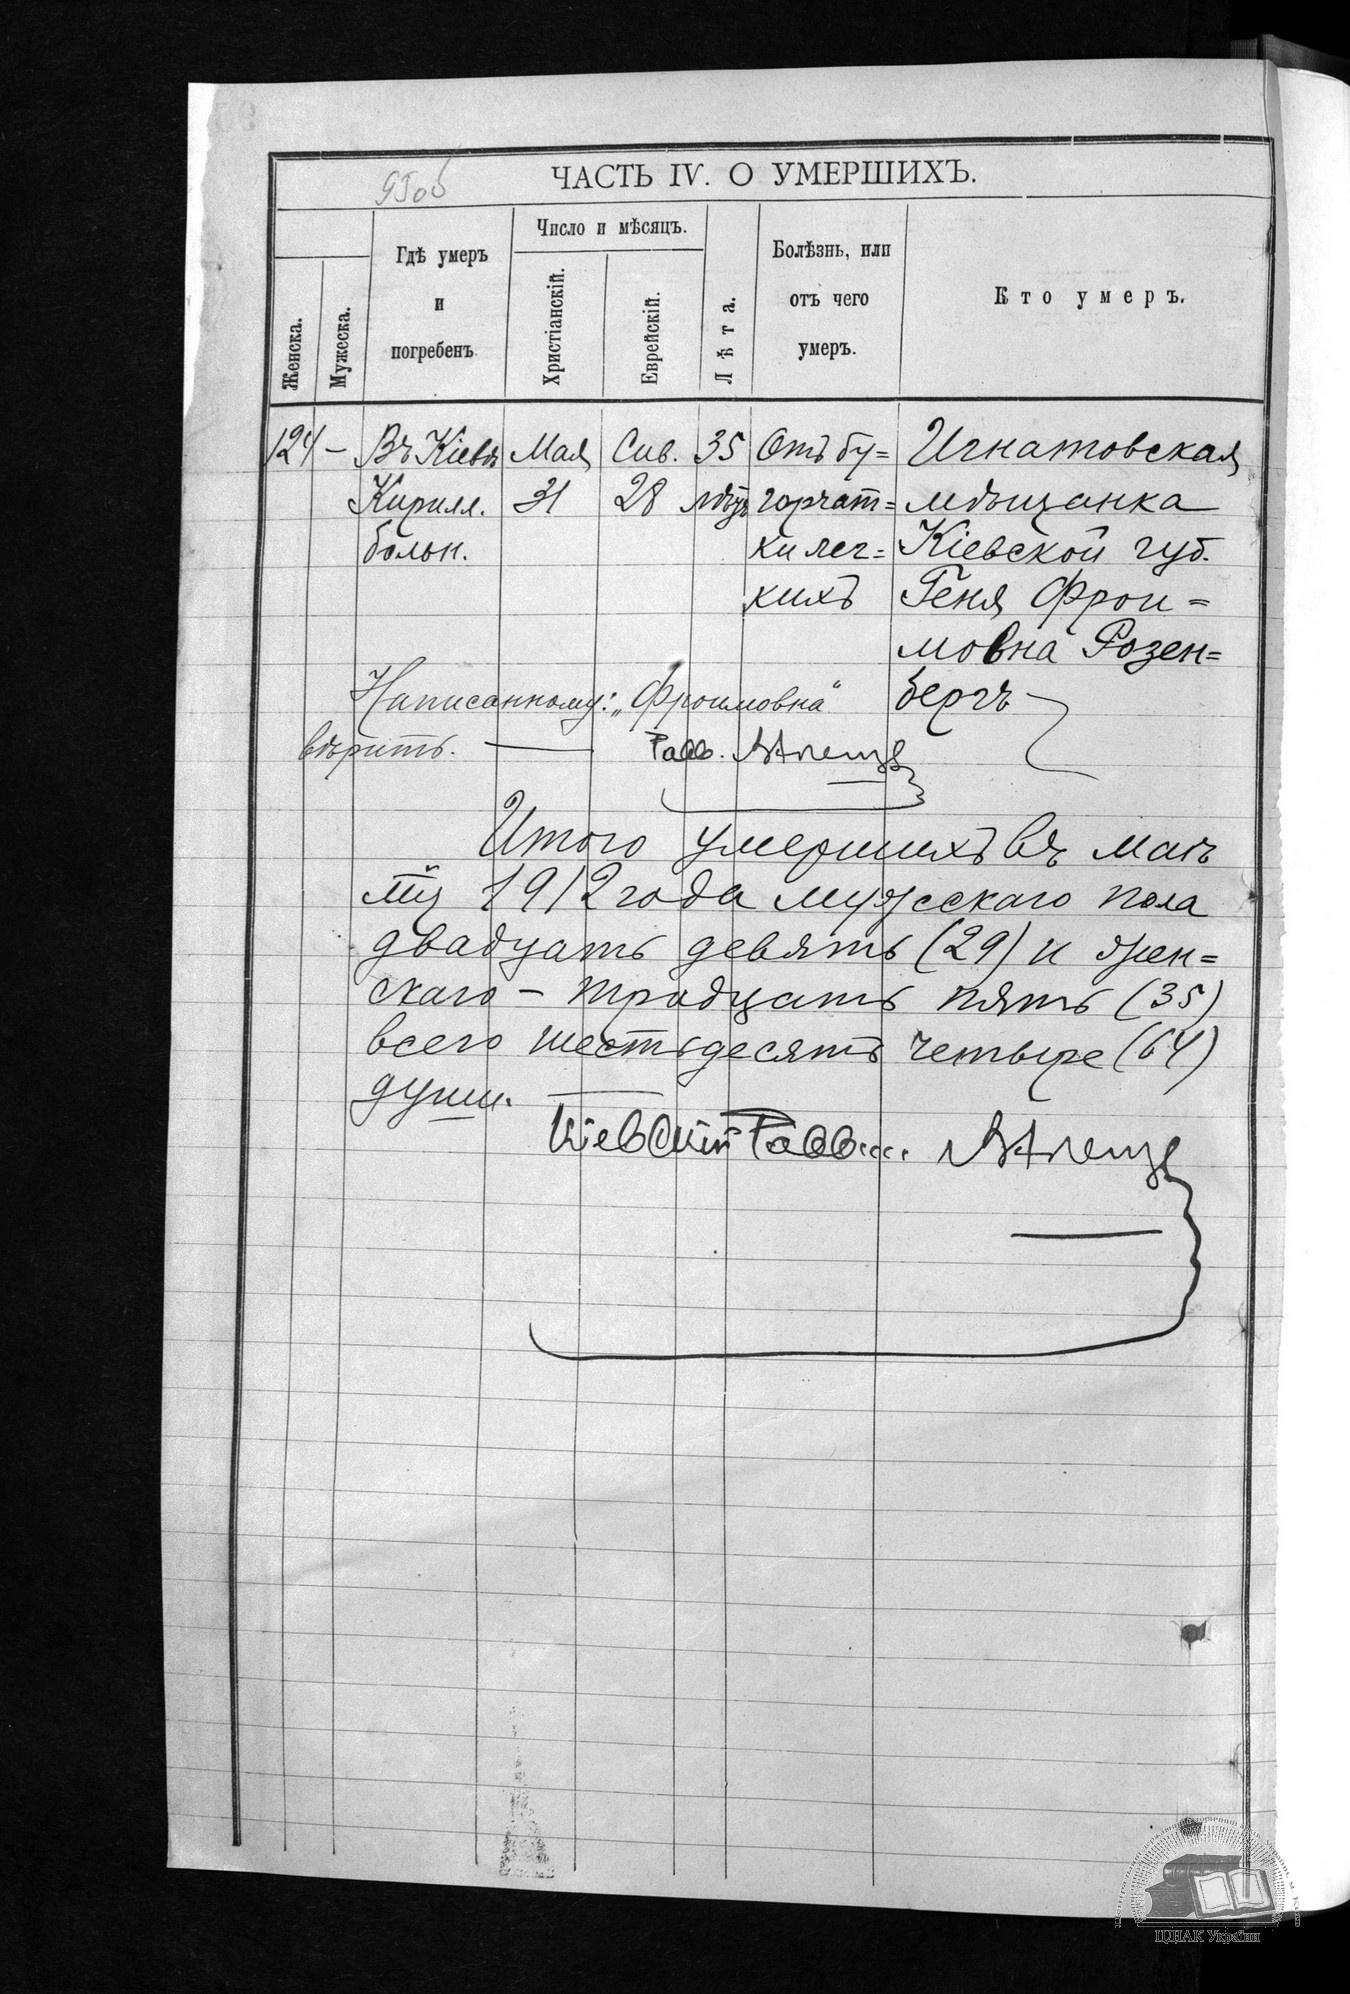 95 об
ЧАСТЬ IV. О УМЕРШИХЪ.
Женска.
Мужеска.
Гдѣ умеръ
и
погребенъ
Число и мѣсяцъ.
Христіанскій.
Еврейскій.
Лѣта.
Болѣзнь, или
отъ чего
умеръ.
Кто умеръ.
124 – Въ Кіевѣ Мая Сив. 35 Отъ бу= Игнатовская
Кирилл. 31 28 лѣтъ горчат= мѣщанка
больн. ки лег= Кіевской губ.
кихъ Геня Фрои=
мовна Розен=
Написанному: „Фроимовна“ бергъ
вѣрить. — Равв.
Итого умершихъ въ маѣ
мц 1912 года мужскаго пола
двадцать девять (29) и жен=
скаго – тридцать пять (35)
всего шестьдесятъ четыре (64)
души.
Кіевскій Равв....
ЦДІАК України